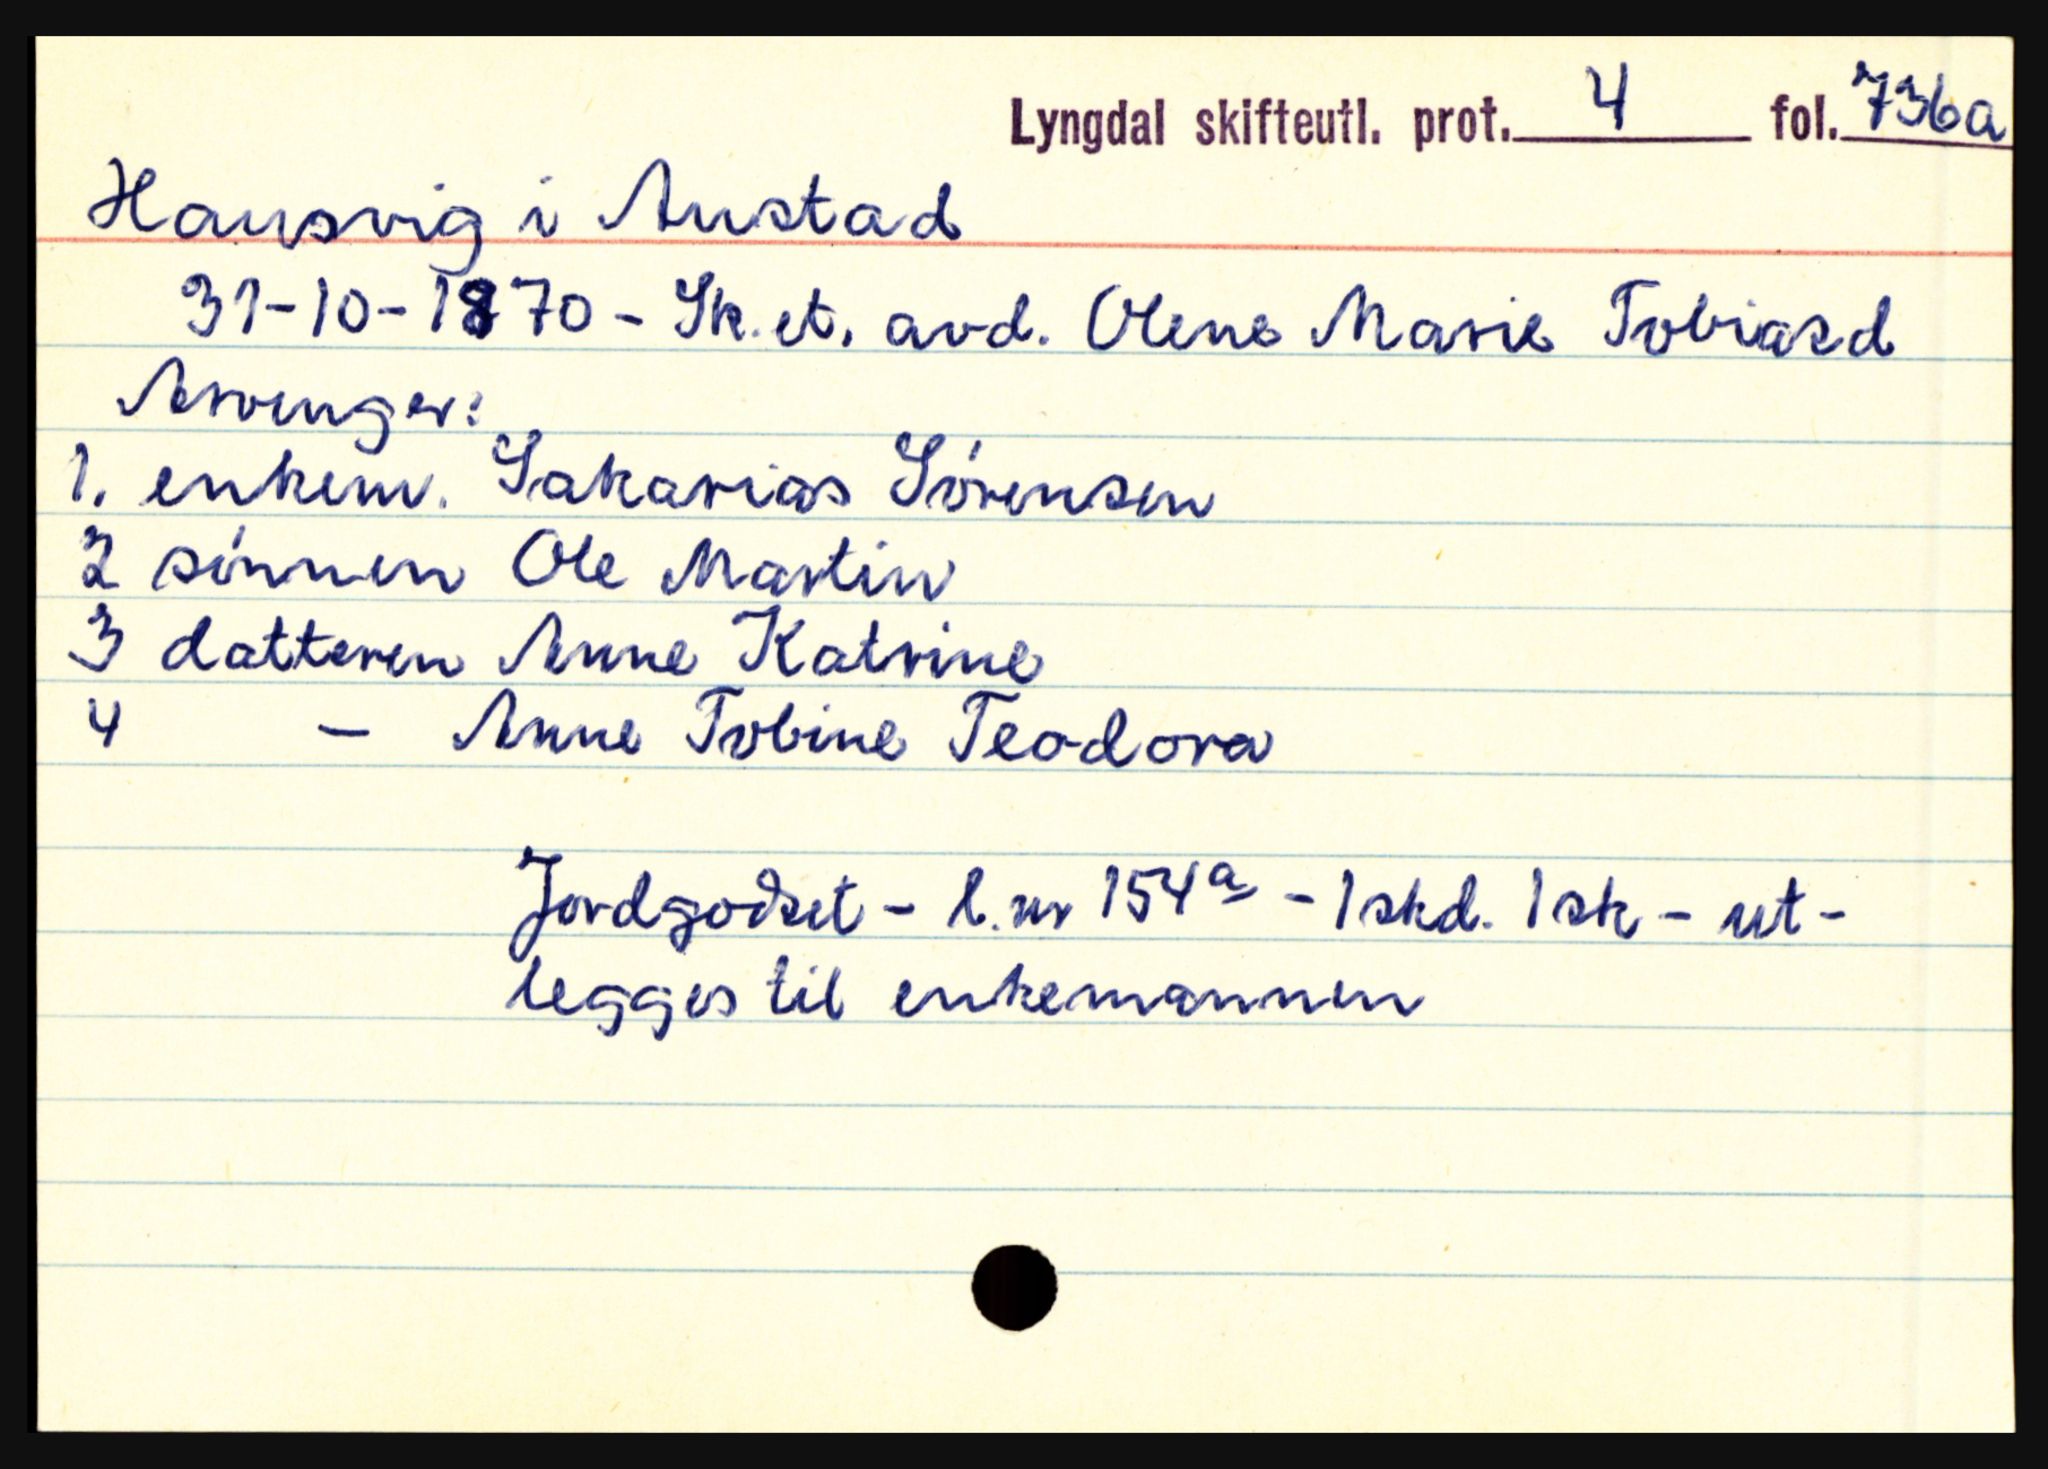 Lyngdal skifteutl. prot. 4 fol. 736a
Hausvig i Austad
31-10-1870 - Sk. et. avd. Olene Marie Tobiasd
Arvinger:
1. enkem. Sakarias Sørensen
2 sønnen Ole Martin
3 datteren Anne Katrine
4 - Anne Tobine Teodora
Jordgodset - l.nr 154a - 1 skd. 1 sk - ut-
legges til enkemannen